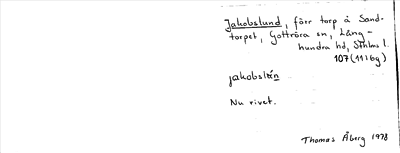 Jakobslund, förr torp å Sand-
torpet, Gottröra sn, Lång-
hundra hd, Sthlms l.
107 (11i6g)
jakobslẹ́n
Nu rivet.
Thomas Åberg 1978